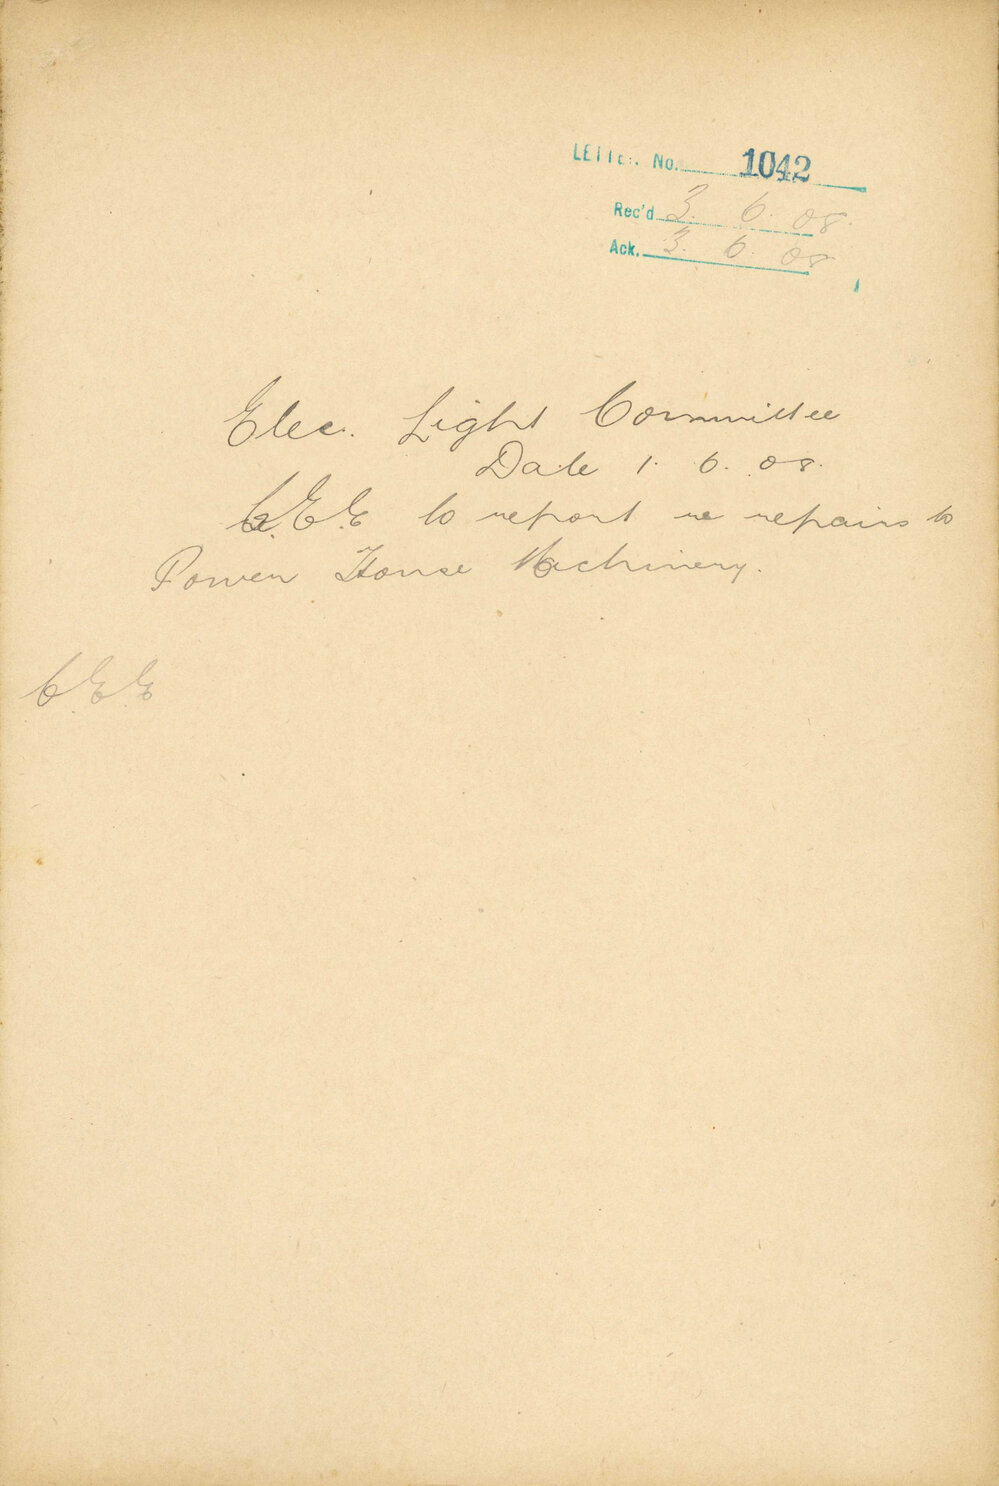 LETTER No. 1042
Rec'd 3. 6. 08.
Ack. 3. 6. 08
Elec. Light Committee
Date 1. 6. 08.
C.E.E. to report re repairs to
Power House Machinery.
C.E.E